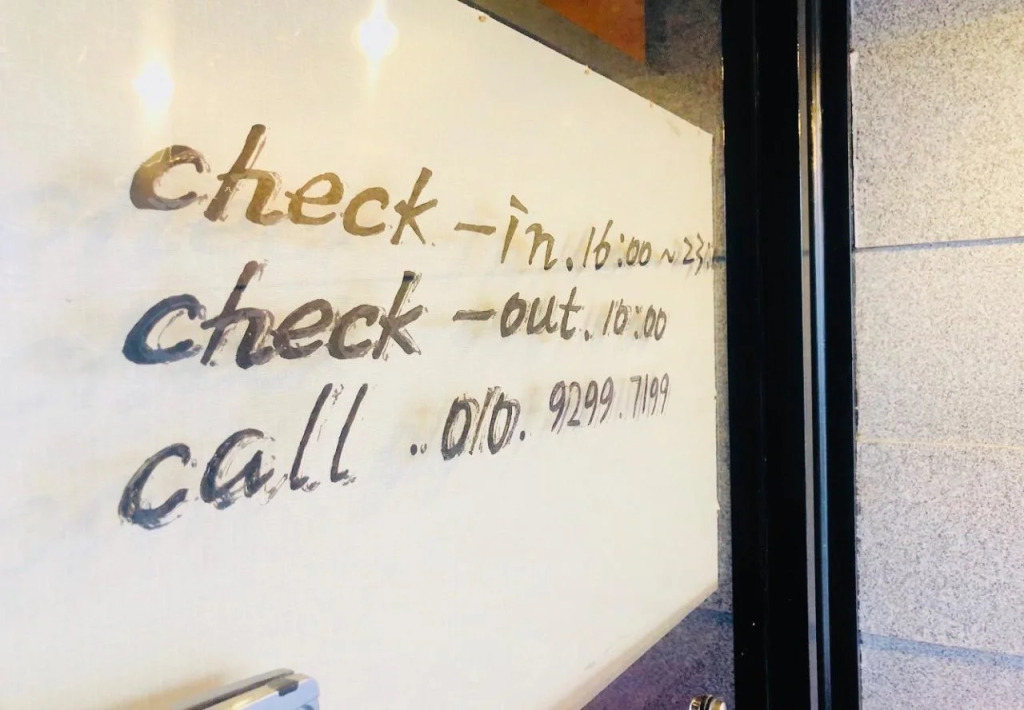 check -in. 16:00 ~ 23:
check -out. 10:00
call .. 010. 9299. 7199